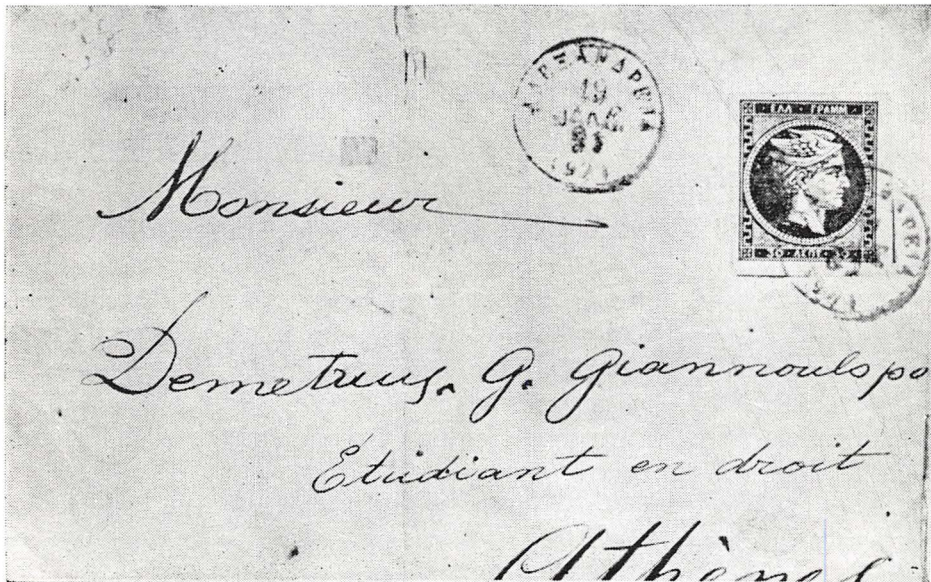 ΑΛΕΞΑΝΔΡΕΙΑ
19
83
(97)
ΕΛΛ ΓΡΑΜΜ
30 ΛΕΠΤ 30
Monsieur
Demetrius. G. Giannoulspo
Etudiant en droit
Athènes